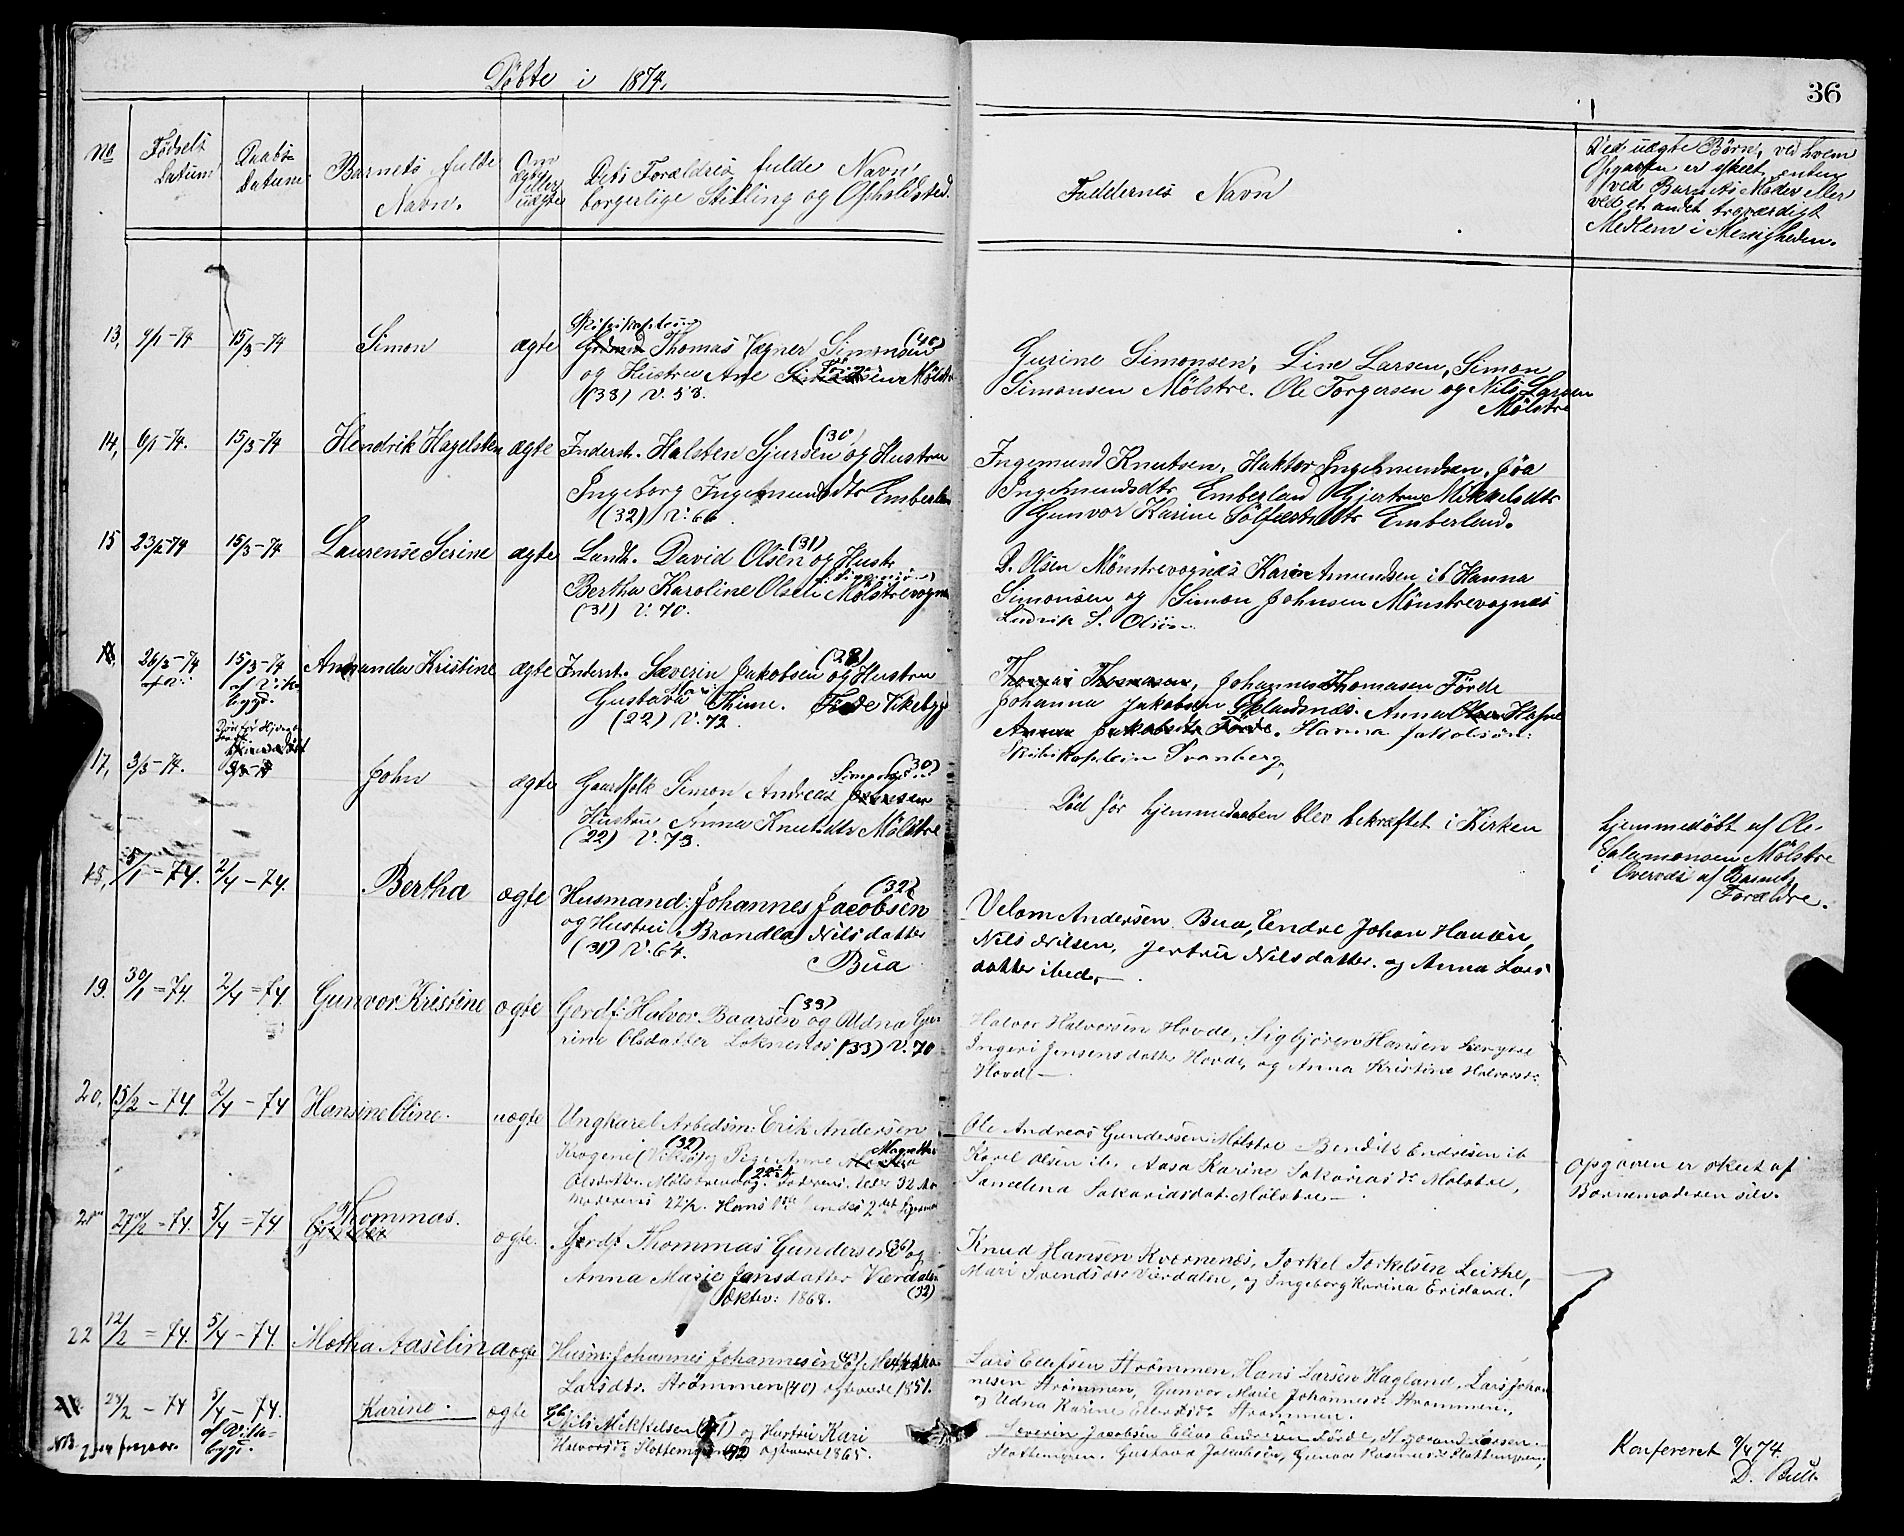 Döbte i 1874.
36
No
Födsels Datum
Daabs Datum
Barnets fulde Navn.
Om ægte eller uægte
Dets Forældres fulde Navn, borgerlige Stilling og Opholdsted.
Faddernes Navn
Ved uægte Börn, ved hvem
Opgaven er skeet, enten
ved Barnets Moder eller
ved et andet troværdigt
Medlem i Menigheden.
13, 9/1-74 15/3-74 Simon ægte
Thomas Vagner Simonsen (40)
og Hustru Ane Mölstre
(38) V. 58.
Gurine Simonsen, Line Larsen, Simon
Simonsen Mölstre. Ole Torgersen og Nils Larsen
Mölstre
14, 6/1-74. 15/3-74 Hendrik Hagelsten ægte
Inderst. Halsten Sjursen (30) og Hustru
Ingeborg Ingemundsdtr Emberland
(32) V. 66.
Ingemund Knutsen, Haktor Ingemundsen,
Ingemundsdtr Emberland Gjertrue Mikkelsdtr
Gunvor Karine Emberland.
15 23/2-74 15/3-74 Laurense Serine ægte
Landh. David Olsen (31) og Hustr
Bertha Karoline Olsen Mölstrevogne
(31) V. 70.
D. Olsen Mönstrevognes Karin Amundsen ib Hanna
Simonsen og Simon Johnsen Mönstrevognes
Ludvik S.
16, 26/3-74 15/3-74 Amanda Kristine ægte
Inderst. Severin Jakobsen (28) og Hustru
Gustava Thime. Förde Vikebygd
(22) V. 72
Thomas Thomasen, Johannes Thomasen Förde
Johanna Jakobsen Anna
Anna Jakobsdtr Förde. Hanna Jakobsen
Skibskaptein Svanberg,
17, 3/3-74. John ægte
Gaardfolk Simon Andreas (30)
Hustru Anna Knutsdtr Mölstre
(22) V. 73.
Död för hjemmedaaben blev bekræftet i Kirken
hjemmedöbt af Ole
Salamonsen Mölstre
i Overvær af Barnets
Forældre.
18, 5/1-74. 2/4-74. Bertha ægte
Husmand: Johannes Jacobsen (32)
og Hustru Brandla Nilsdatter
(31) V. 64. Bua
Velom Andersen Bua, Endre Johan Hansen,
Nils Nilsen, Jertru Nilsdatter. og Anna Lars
datter ibed.
19. 30/1-74. 2/4-74. Gunvor Kristine ægte
Gerdf: Halvor Baarsen (33) og Udna Gu
rine Olsdatter Loknenes (33) V. 70
Halvor Halvorsen Hovde, Sigbjören Hansen
Ingeri Jensensdatter Hovde, og Anna Kristine Halvorsd.
Hovde
20, 15/2-74. 2/4-74 Hansine Oline. uægte
Ungkarel Arbedsm: Erik Andersen
(32) og Pige Anne
Olsdatter Mölstrevog. Faderens alder 32 Aar
Moderens 22 1/2. Hans 1ste hendes 2det
Ole Andreas Gundersen Mölstre Bendik Endresen ib
Karel Olsen ib. Aasa Karine Sakariasdr Mölstre,
Sandena Sakariasdat Mölstre
Opgaven er skeet af
Barnemoderen selv.
21 27/2-74. 5/4-74 Thommas. ægte.
Gerdf Thommas Gundersen (36) og
Anna Marie Jansdatter Værdalen (32)
Æktev: 1868.
Knud Hansen Kvernenes, Torkel Torkelsen Leirke,
Mari Svendsdtr Værdalen, og Ingeborg Karina Erisland.
22 12/2-74. 5/4-74. Metha Aaselina ægte
Husm: Johannes Johannesen (47) Metha
Larsdtr. Strömmen (40) egteviede 1851.
Lars Ellefsen Strömmen, Hans Larsen Hagland, Lars Johan
nesen Strömmen, Gunvor Marie Johannesd. Strömmen,
og Udna Karine Strömmen.
24/2-74 5/4-74. Karine. ægte
Nils Mikkelsen (41) og Hustru Kari
Halvorsdr egteviede 1865.
Severin Jacobsen Elias Endresen Förde,
Gustava Jakobsen, Gunvor Rasmusd.
Konfereret 9/4 74.
D. Bull.